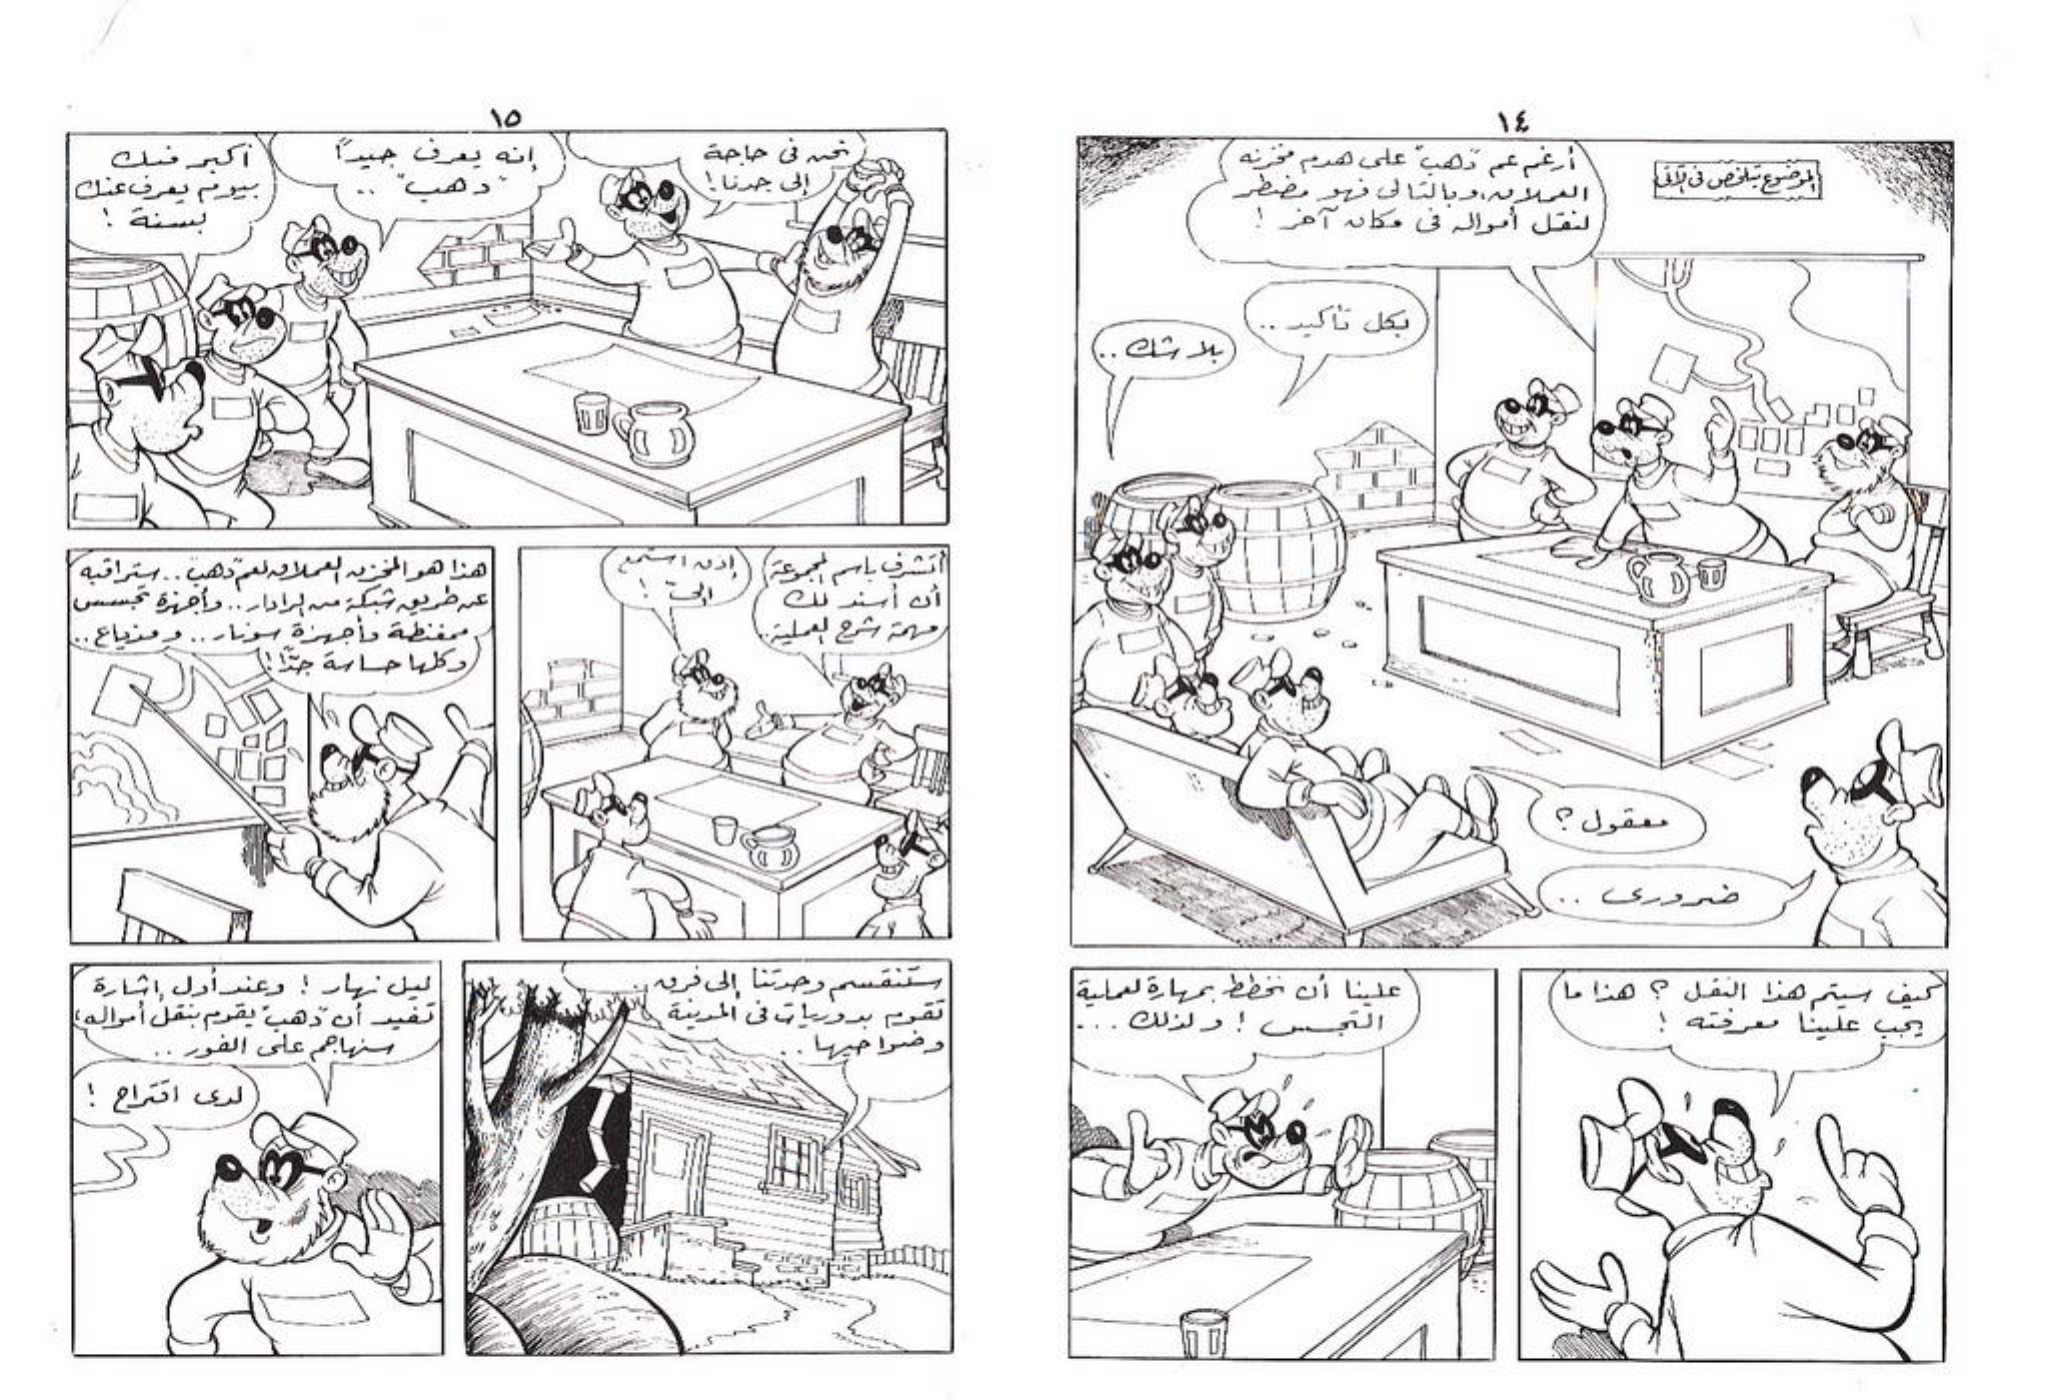 ١٤
الموضوع يتلخص فى الآتى
أرغم عم "دهب" على هدم مخزنه
العملاق، وبالتالى فهو مضطر
لنقل أمواله فى مكان آخر !
بكل تأكيد ..
بلا شك ..
معقول ؟
ضرورى ..
كيف سيتم هذا النقل ؟ هذا ما
يجب علينا معرفته !
علينا أن نخطط بمهارة لعملية
التجسس ! ولذلك ...
١٥
نحن فى حاجة
إلى جدنا !
إنه يعرف جيداً
"دهب" ..
أكبر منك
بيوم يعرف عنك
بسنة !
أتشرف باسم المجموعة
أن أسند لك
مهمة شرح العملية ..
إذن استمع
إلىّ !
هذا هو المخزن العملاق لعم "دهب" .. ستراقبه
عن طريق شبكة من الرادار .. وأجهزة تجسس
ممغنطة وأجهزة سونار .. ومذياع ..
وكلها حساسة جدّاً !
ستنقسم وحدتنا إلى فرق ..
تقوم بدوريات فى المدينة
وضواحيها ..
ليل نهار ! وعند أول إشارة
تفيد أن "دهب" يقوم بنقل أمواله،
سنهاجم على الفور ..
لدى اقتراح !